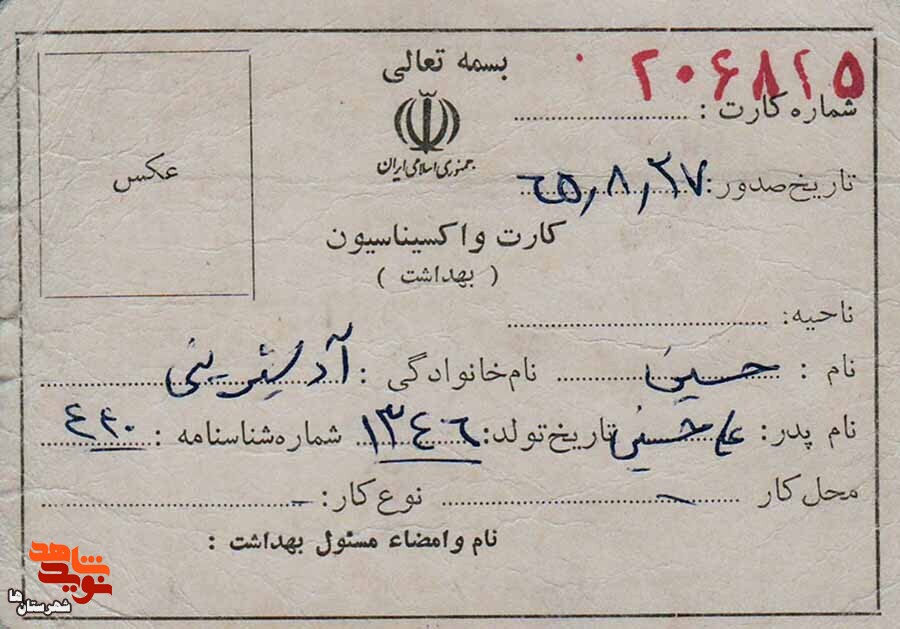 بسمه تعالی
۲۰۶۸۲۵
شماره کارت :
جمهوری اسلامی ایران
تاریخ صدور: ۶۵٫۸٫۲۷
عکس
کارت واکسیناسیون
( بهداشت )
ناحیه:
نام : حسین نام خانوادگی :
نام پدر: علی حسین تاریخ تولد: ۱۳۴۶ شماره شناسنامه : ۴۴۰
محل کار - نوع کار: -
نام و امضاء مسئول بهداشت :
نوید شاهد
شهرستان ها